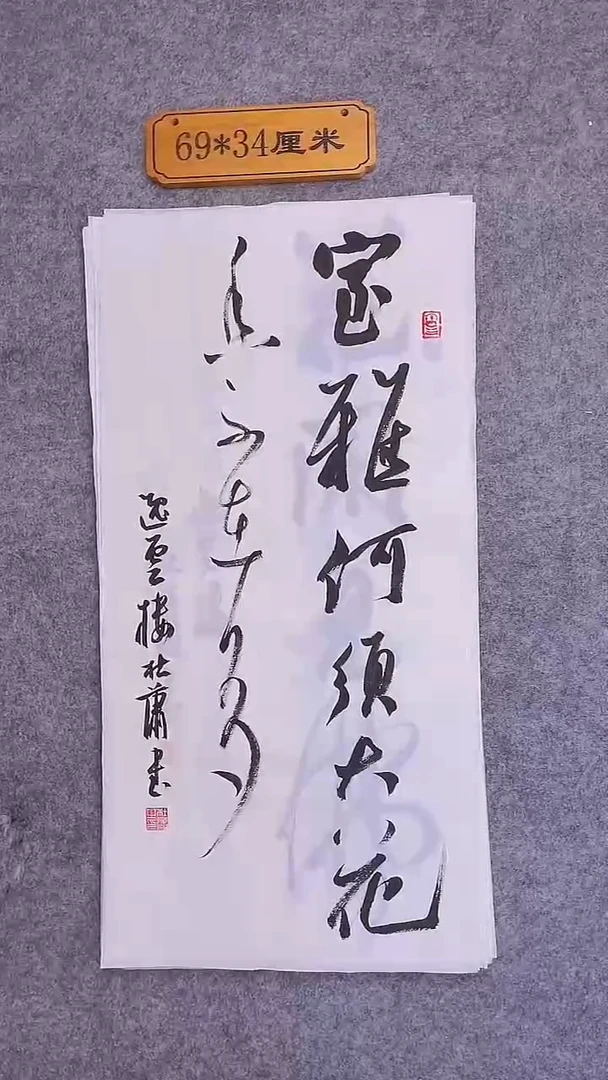 69*34厘米
室雅何须大花
香不在多
逸云楼杜萧书